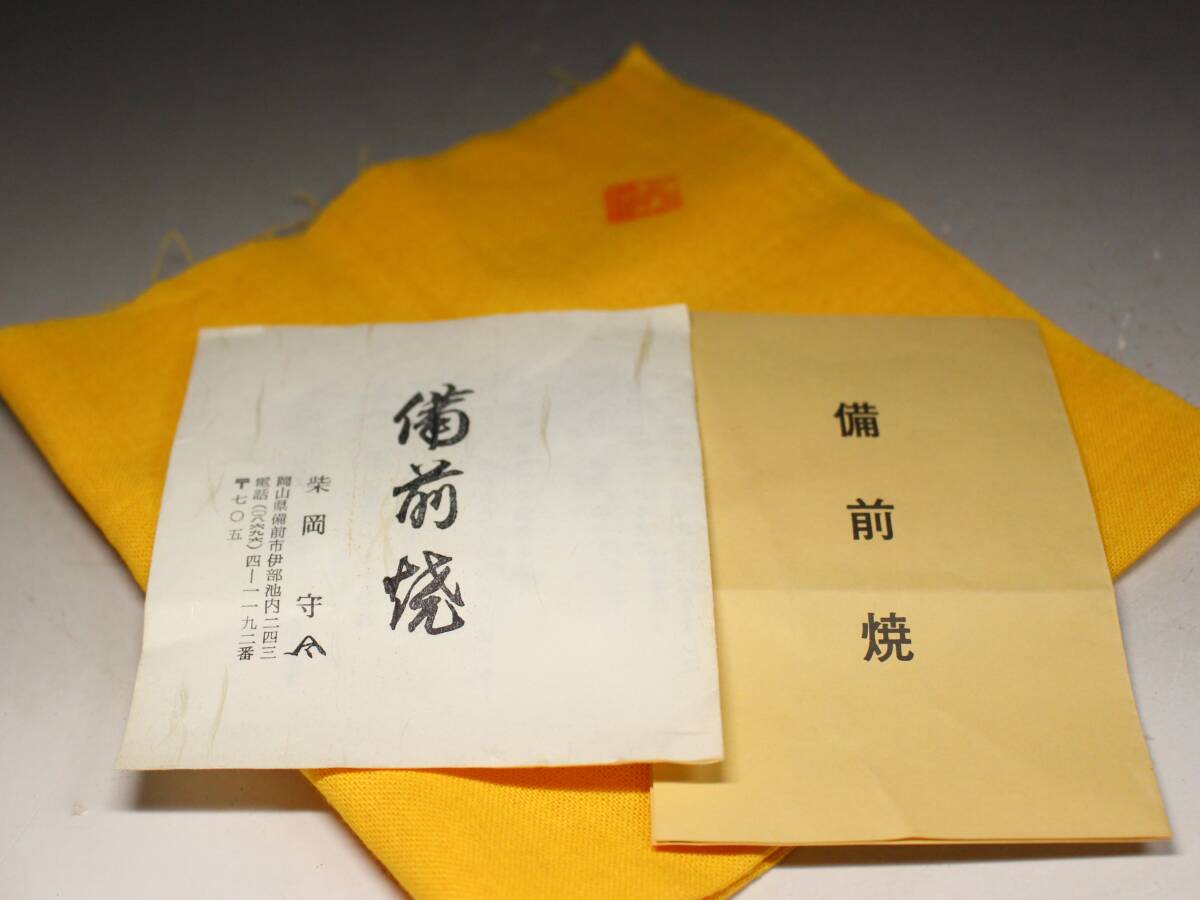 備前焼
柴岡守
岡山県備前市伊部池内二四三
電話(〇八六九六)四―一一九二番
〒七〇五
備前焼